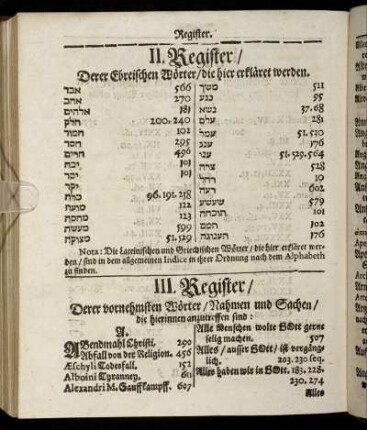 Register.
II. Register/
Derer Ebreischen Wörter/die hier erkläret werden.
אבד 566
אהב 270
אלהים 181
חלק 200. 240
חמור 102
חסר 295
חרים 496
יכח 101
יסר 101
יקר
כוה 96. 191. 238
מועה 122
מחסה 123
מעש 599
מצוקה 51. 529
משך 511
נגע 55
נשא 37. 68
עלם 281
עמל 51. 520
ענג 176
עני 51. 529. 564
צרה 528
רחל 10
רעה 602
שעשע 579
תוכחה 101
תמם 102
תענוגה 176
Nota: Die Lateinischen und Griechischen Wörter/ die hier erkläret wer-
den/ sind in dem allgemeinen Indice in ihrer Ordnung nach dem Alphabeth
zu finden.
III. Register/
Derer vornehmsten Wörter/ Nahmen und Sachen/
die hierinnen anzutreffen sind:
A.
ABendmahl Christi. 290
Abfall von der Religion. 456
Æschyli Todesfall. 152
Alboini Tyranney. 611
Alexandri M. Sauffkampff. 607
Alle Menschen wolte GOtt gerne
selig machen. 507
Alles/ ausser GOtt/ ist vergäng-
lich. 203. 230 seq.
Alles haben wir in GOtt. 183. 228.
230. 274
Alles